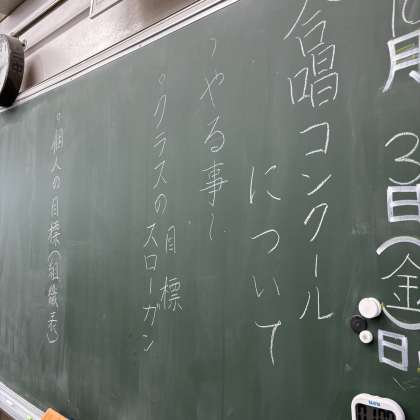 月3日(金)日
合唱コンクール
について
〜やる事〜
。クラスのスローガン
目標
。個人の目標(組織表)